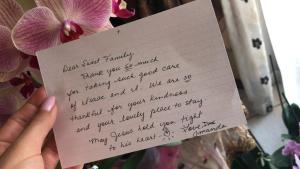 Dear Sweet Family,
Thank you so much
for taking such good care
of and it. We are so
thankful for your kindness
and your lovely place to stay
May Jesus hold you tight
to his heart
Love,
Amanda